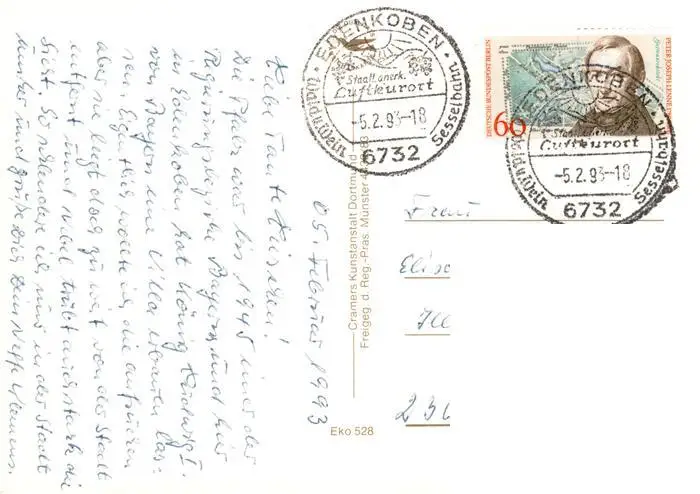 Liebe Tante Lieschen!
Die Pfalz war bis 1945 unter der
Regierungsbezirk Bayerns und hier
in Edenkoben hat König Ludwig I.
von Bayern eine Villa erbauen las-
sen. Eigentlich wollte ich die aufsuchen
aber sie liegt doch zu weit von der Stadt
entfernt und Nebel trübt auch stark die
Sicht. So schlendere ich nur in der Stadt
umher und grüße Dich Dein Neffe Klemens.
05. Februar 1993
Cramers Kunstanstalt Dortmund
Freigeg. d. Reg.-Präs. Münster
Eko 528
EDENKOBEN
Staatl. anerk.
Luftkurort
-5.2.93-18
6732
Weinprobe
Sesselbahn
DEUTSCHE BUNDESPOST BERLIN
60
PETER JOSEPH LENNÉ
EDENKOBEN
Staatl. anerk.
Luftkurort
-5.2.93-18
6732
Sesselbahn
Frau